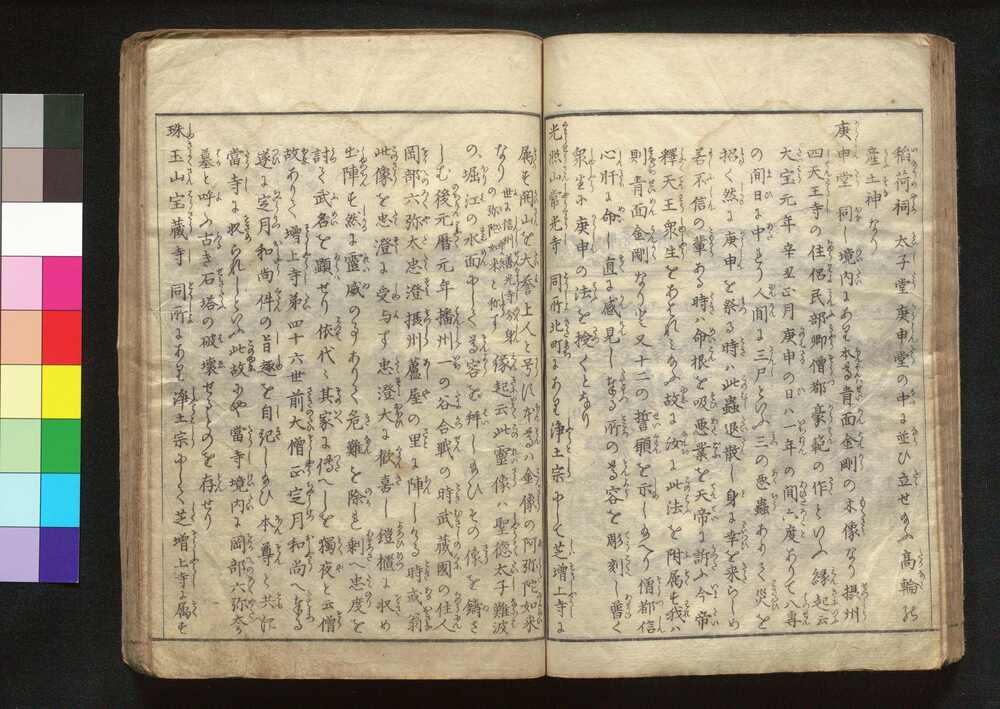 稲荷祠 太子堂庚申堂の中に並ひ立せ給ふ高輪の
産土神なり
庚申堂 同し境内にあり本尊青面金剛の木像なり摂州
四天王寺の住侶民部卿僧都豪範の作といふ縁起云
大宝元年辛丑正月庚申の日ハ一年の間六度ありて八専
の間日に中れり人間に三尸といふ三の悪蟲ありて災を
招く然に庚申を祭る時ハ此蟲退散し身に幸を来らしめ
善不信の輩ある時ハ命根を吸悪業を天帝に訴ふ今帝
釋天王衆生をあはれミ給ふ故に汝に此法を附属す我ハ
則青面金剛なりと又十二の誓願を示し給へり僧都信
心肝に命し直に感見し奉る所の尊容を彫刻し普く
衆生に庚申の法を授くとなり
光照山常光寺 同所北町にあり浄土宗にして芝増上寺に
属す岡山を大誉上人と号す本尊ハ金像の阿弥陀如来
世に信州善光寺分身の弥陀如来と称す 縁起云此靈像ハ聖徳太子難波
の堀江の水面にして尊容を拝し給ひその像を鋳さ
しむ後元暦元年播州一の谷合戦の時武蔵國の住人
岡部六弥太忠澄摂州蘆屋の里に陣しける時或翁
此像を忠澄に受与す忠澄大に歓喜し鎧櫃に収め
生陣す然に靈威のすありて危難を除き剰へ忠度を
討て武名を顕せり依代々其家に傳へしを獨夜と云僧
故ありて増上寺第四十六世前大僧正定月和尚へ奉る
遂に定月和尚件の旨趣を自記し給ひ本尊と共に
當寺に収られしといふ此故にや當寺境内に岡部六弥太
墓と呼ふ古き石塔の破壊せしものを存せり
珠玉山宝蔵寺 同所にあり浄土宗にして芝増上寺に属す